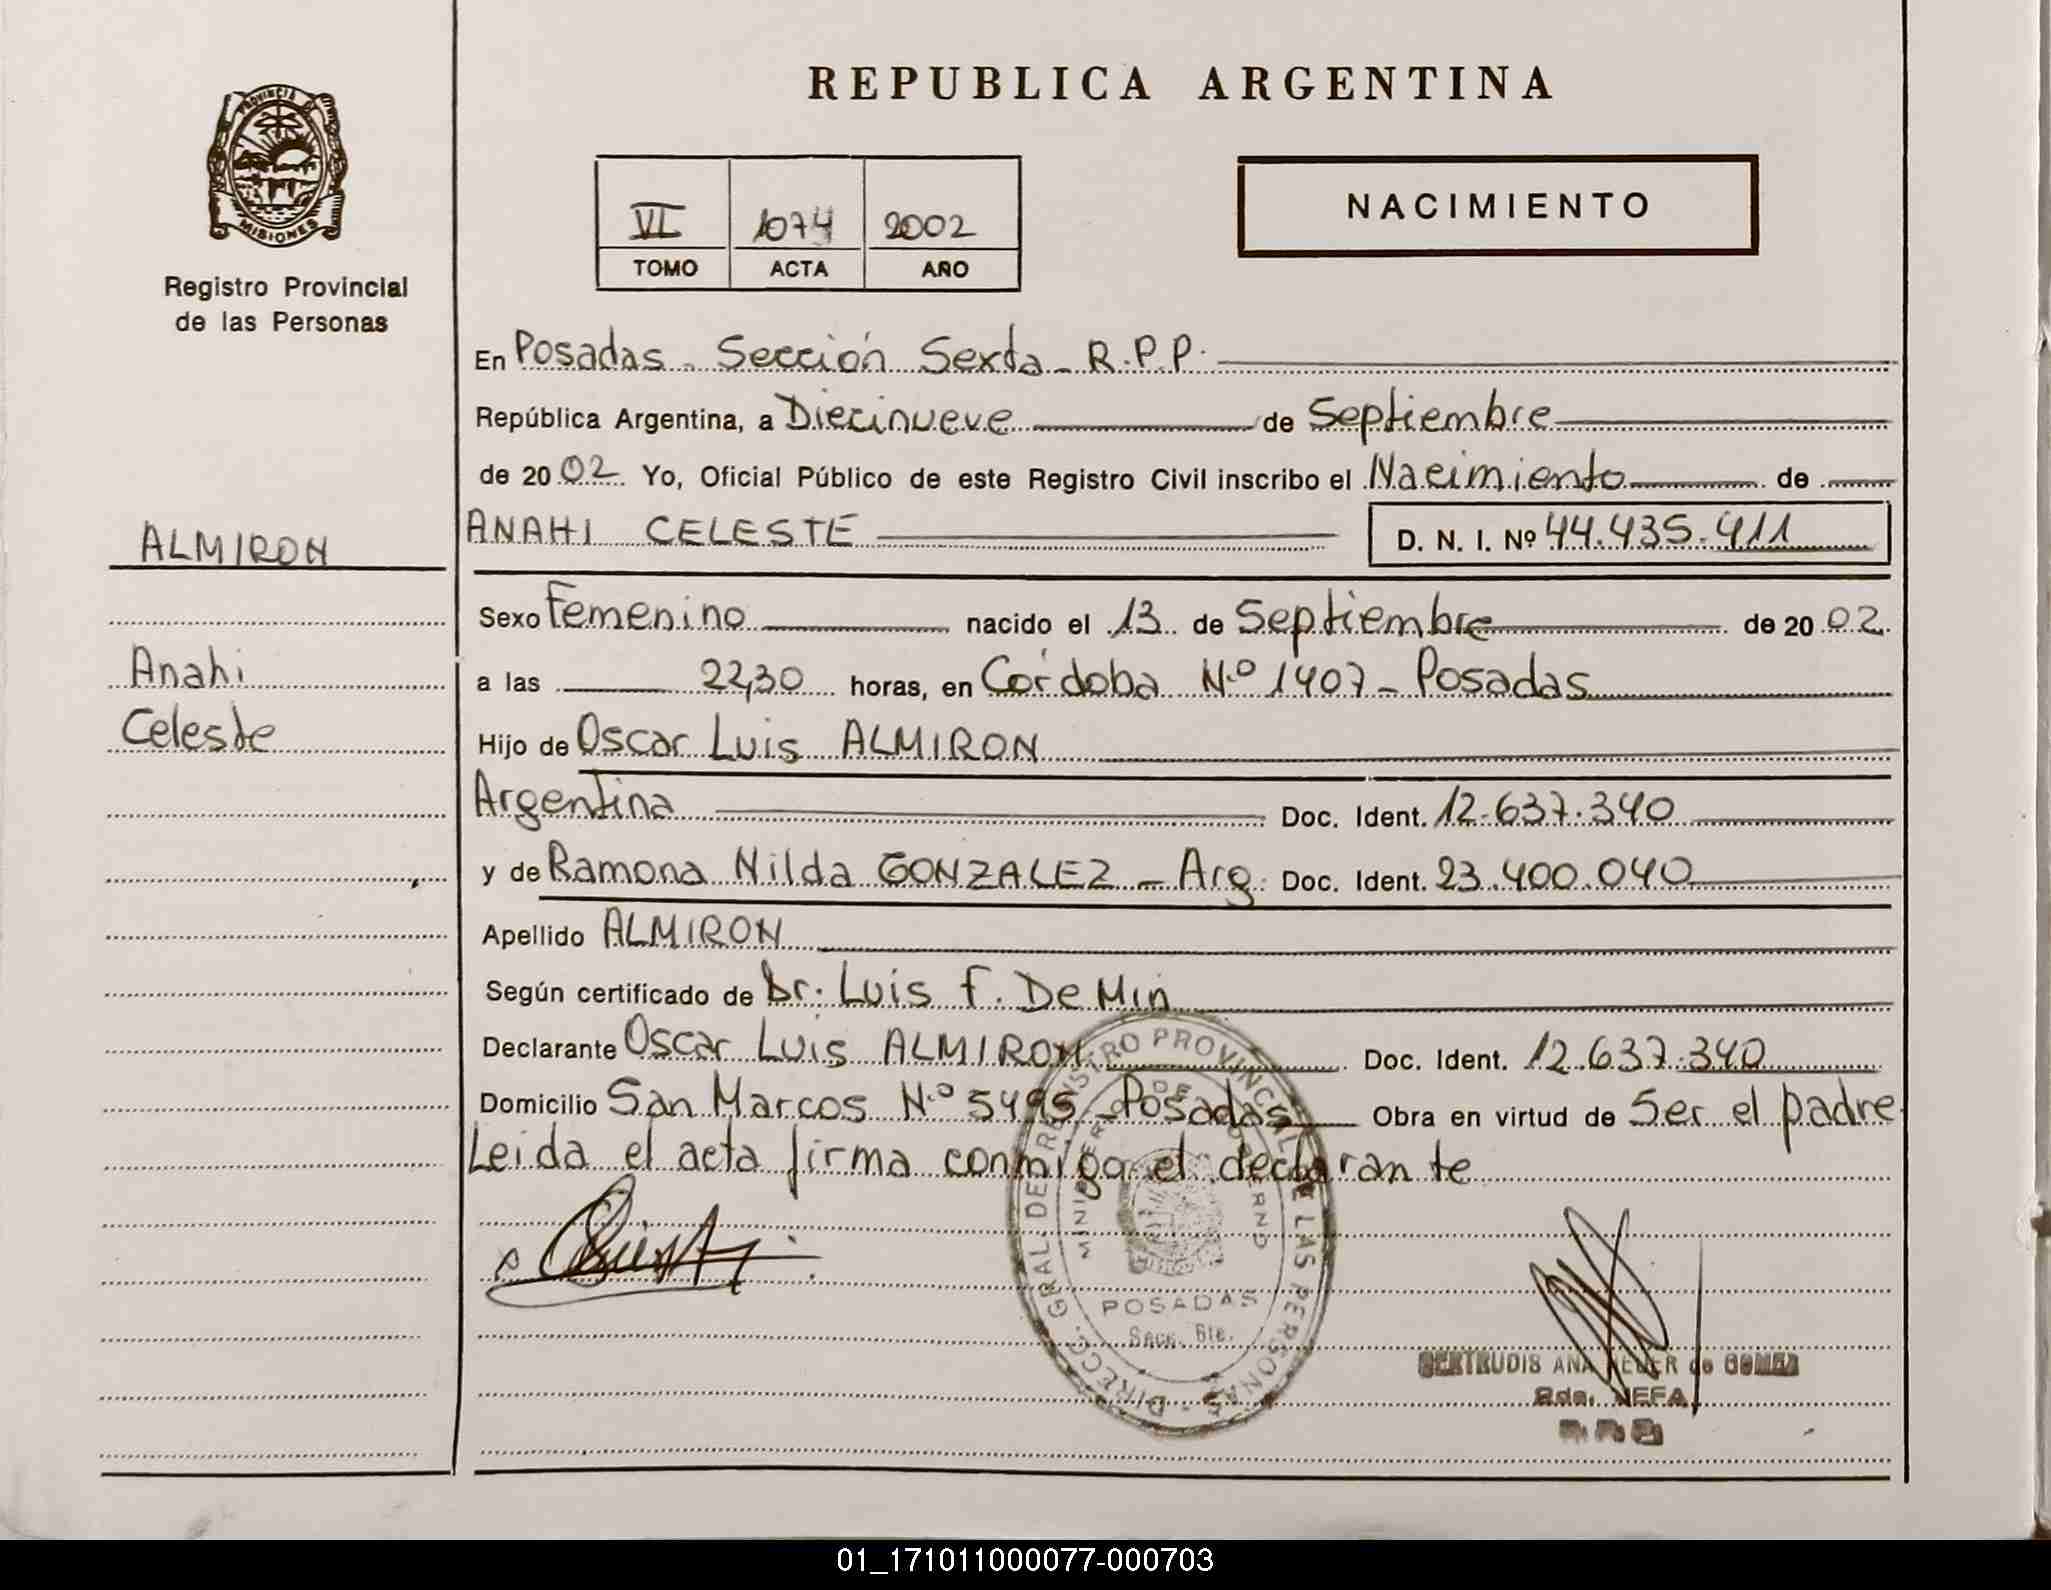 REPUBLICA ARGENTINA
PROVINCIA DE
MISIONES
Registro Provincial
de las Personas
VI 1074 2002
TOMO ACTA AÑO
NACIMIENTO
En Posadas - Sección Sexta - R.P.P.
República Argentina, a Diecinueve de Septiembre
de 2002 Yo, Oficial Público de este Registro Civil inscribo el Nacimiento de
ALMIRON
ANAHI CELESTE D. N. I. Nº 44.435.411
Sexo Femenino nacido el 13 de Septiembre de 2002
Anahi
a las 22,30 horas, en Córdoba N.º 1407 - Posadas
Celeste
Hijo de Oscar Luis ALMIRON
Argentina Doc. Ident. 12.637.340
y de Ramona Nilda GONZALEZ - Arg. Doc. Ident. 23.400.040
Apellido ALMIRON
Según certificado de Dr. Luis F. De Min
Declarante Oscar Luis ALMIRON Doc. Ident. 12.637.340
Domicilio San Marcos N.º 5495 - Posadas Obra en virtud de Ser el padre
Leida el acta firma conmigo el declarante
DIRECC. GRAL. DE REGISTRO PROVINCIAL DE LAS PERSONAS
MINISTERIO DE GOBIERNO
POSADAS
Secc. 6ta.
GERTRUDIS ANA de GOMEZ
JEFA
R.P.P.
01_171011000077-000703